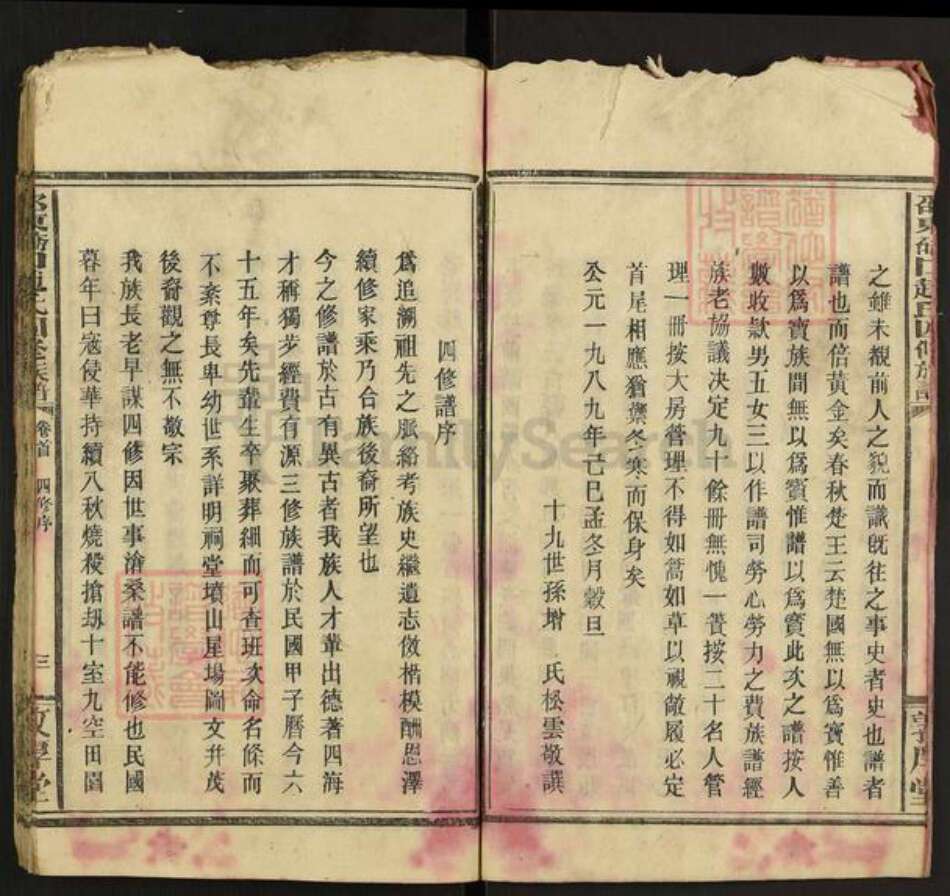 之雖未覩前人之貌而識既往之事史者史也譜者
譜也而倍黃金矣春秋楚王云楚國無以爲寶惟善
以爲寶族間無以爲寶惟譜以爲寶此次之譜按人
數收欵男五女三以作譜司勞心勞力之費族譜經
族老協議决定九十餘冊無愧一詧按二十名人管
理一冊按大房管理不得如蒿如草以視敝履必定
首尾相應猶禦冬寒而保身矣
公元一九八九年己巳孟冬月穀旦
十九世孫增 氏松雲敬譔
四修譜序
爲追溯祖先之脈絡考族史繼遺志倣楷模酬恩澤
續修家乘乃合族後裔所望也
今之修譜於古有異古者我族人才輩出德著四海
才稱獨步經費有源三修族譜於民國甲子曆今六
十五年矣先輩生卒聚葬細而可查班次命名條而
不紊尊長卑幼世系詳明祠堂墳山屋場圖文幷茂
後裔觀之無不敬宗
我族長老早謀四修因世事滄桑譜不能修也民國
暮年日寇侵華持續八秋燒殺搶刼十室九空田園
卷首 四修序
三
FamilySearch